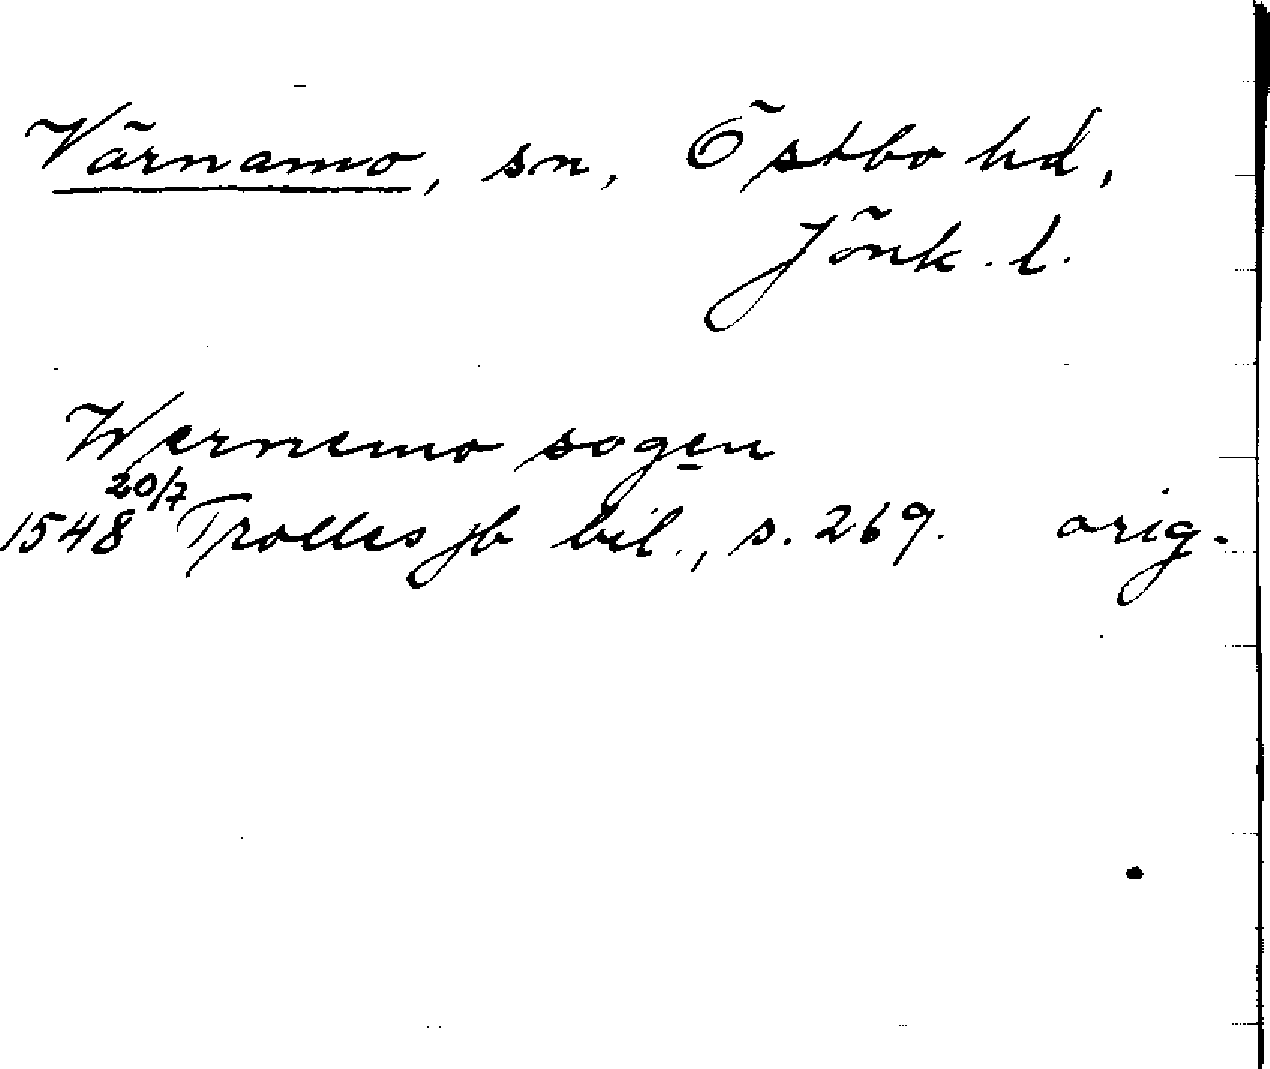 Värnamo, sn, Östbo hd,
Jönk. l.
Wernemo sogen
1548 20/7 Trolles jb bil., s. 269. orig.